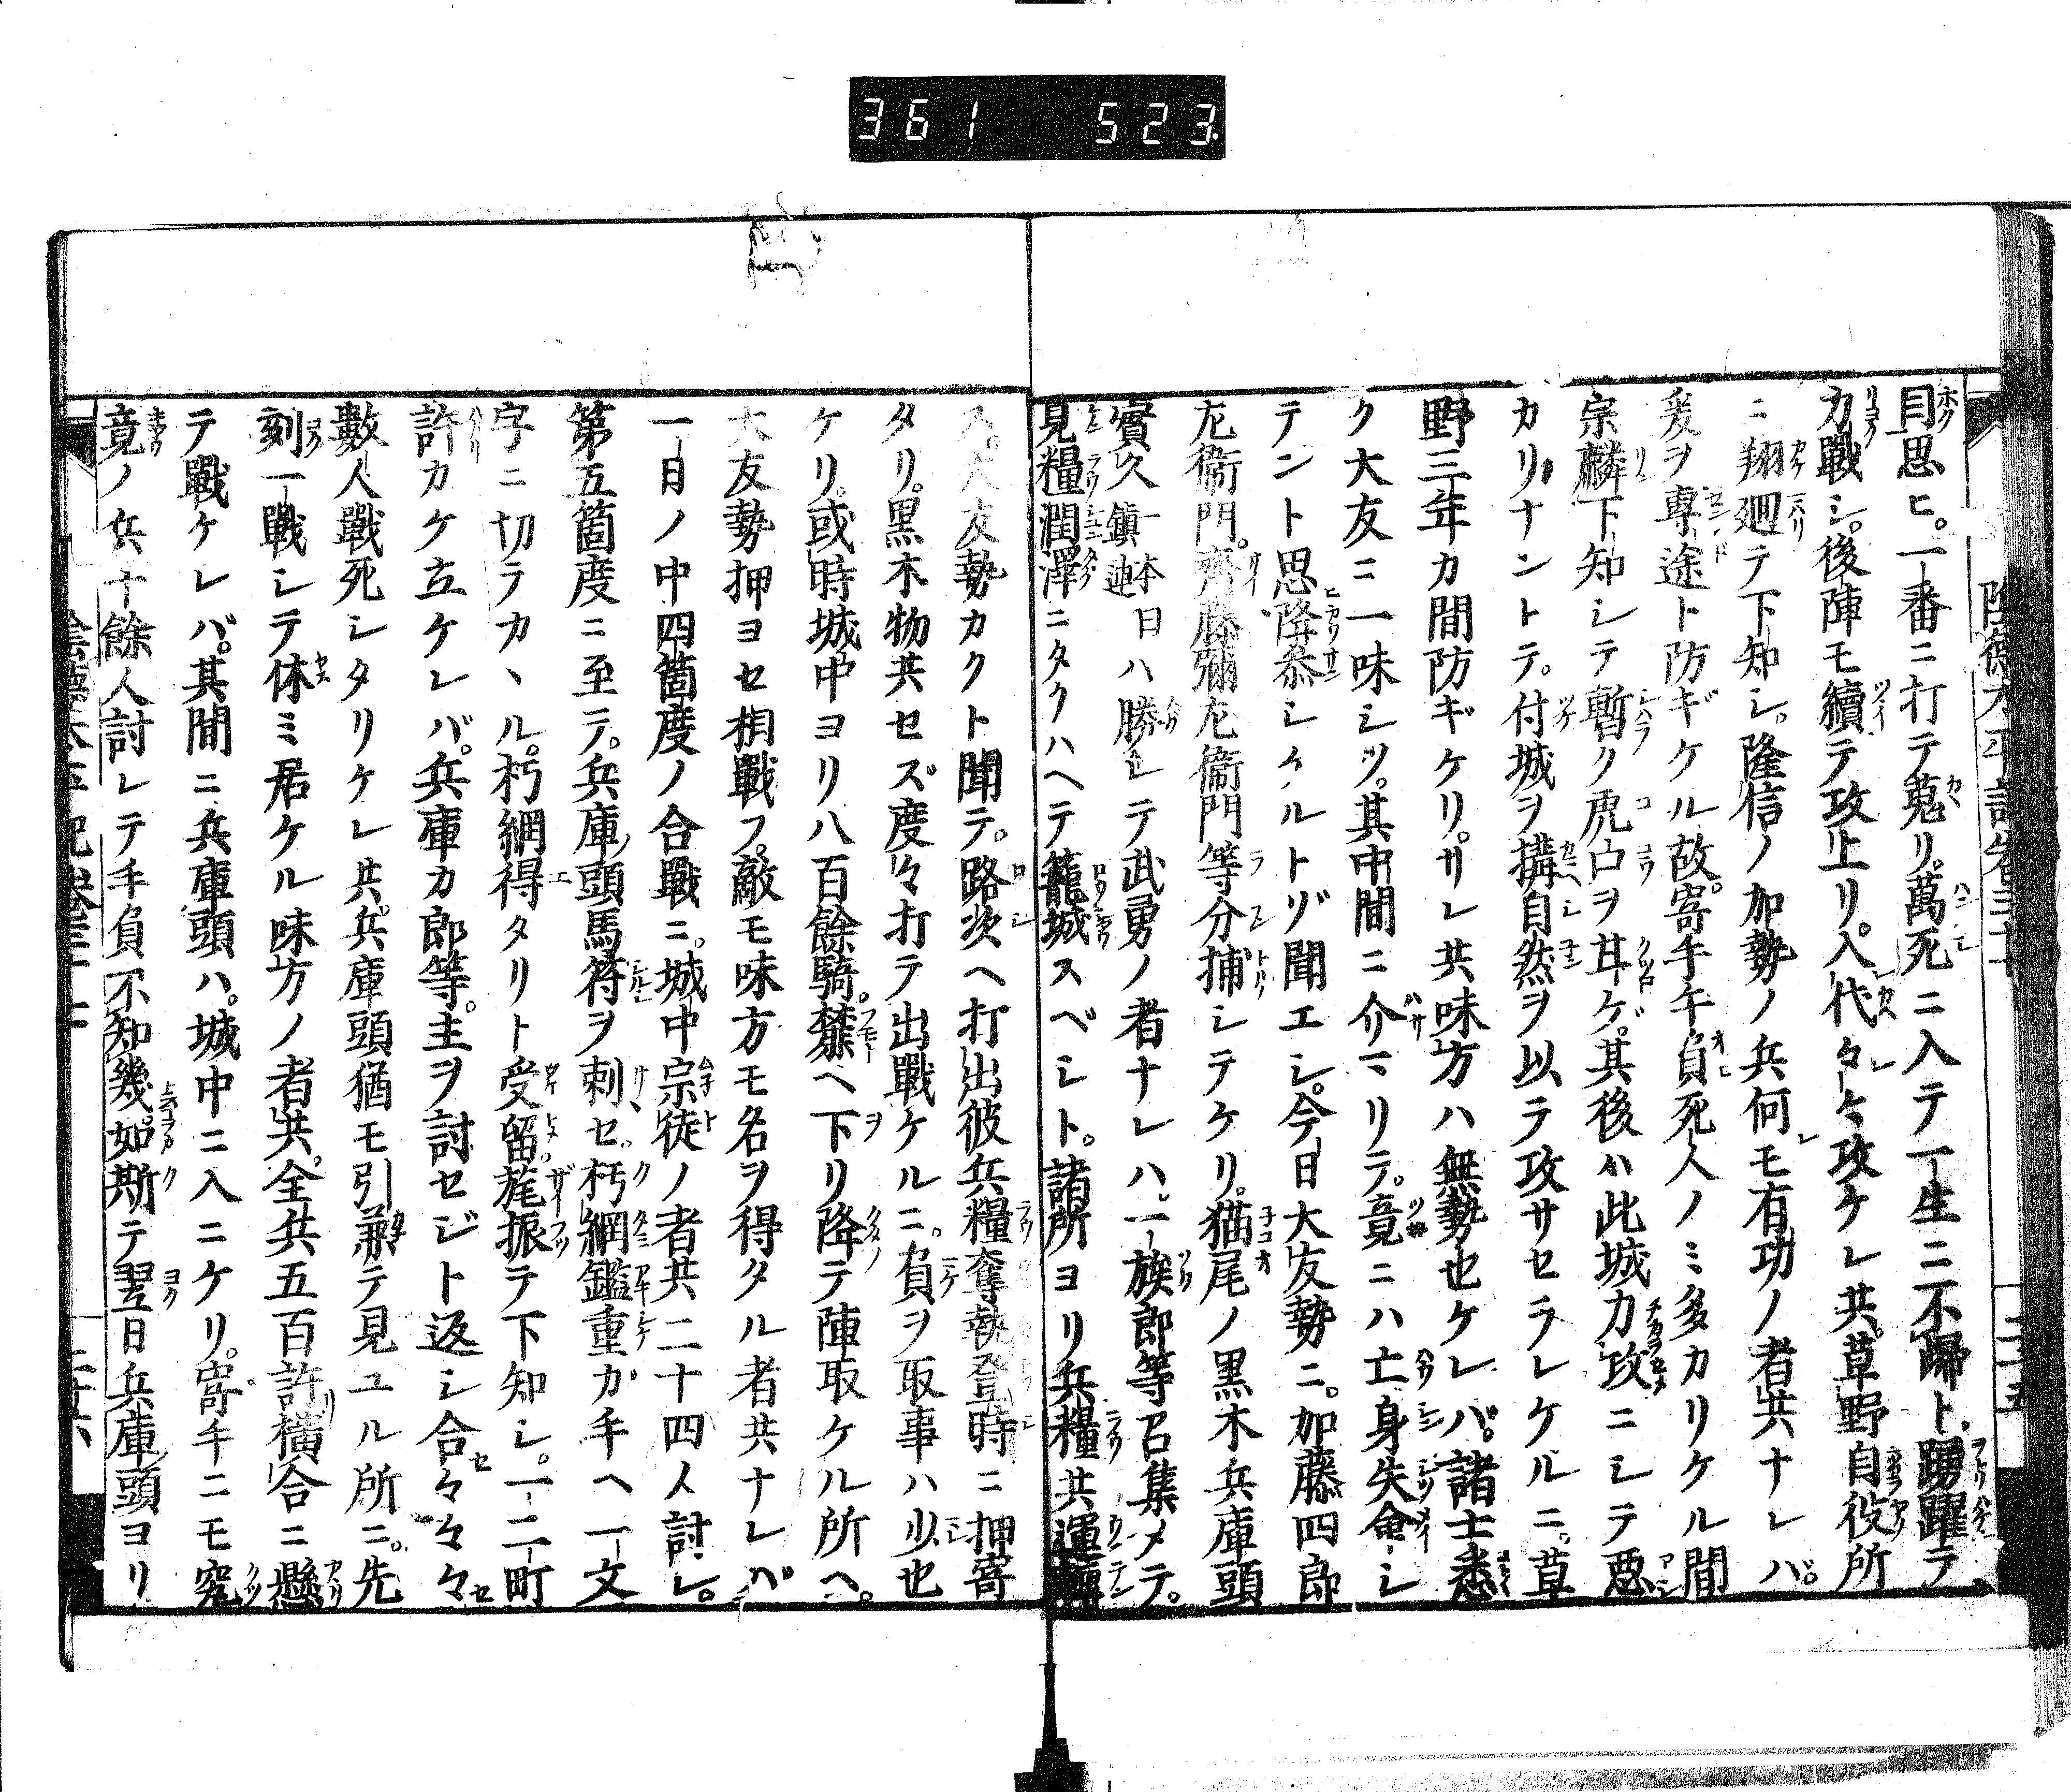 361 523
目思ヒ。一番ニ打テ蒐リ。萬死ニ入テ一生ニ不歸ト。踴躍テ
力戰シ。後陣モ續テ攻上リ。入代々々攻ケレ共。草野自役所
ニ翔廻テ下知シ。隆信ノ加勢ノ兵何モ有功ノ者共ナレバ。
爰ヲ専途ト防ギケル故。寄手手負死人ノミ多カリケル間
宗麟下知シテ暫ク虎口ヲ甘ゲ。其後ハ此城力攻ニシテ悪
カリナントテ。付城ヲ搆自然ヲ以テ攻サセラレケルニ。草
野三年カ間防ギケリ。サレ共味方ハ無勢也ケレバ。諸士悉
ク大友ニ一味シツ。其中間ニ介マリテ。竟ニハ亡身失命シ
テント思降叅シケルトゾ聞エシ。今日大友勢ニ。加藤四郎
左衞門。齊藤彌左衞門等分捕シテケリ。猫尾ノ黒木兵庫頭
實久一本鎭連日ハ勝レテ武勇ノ者ナレハ。一族郎等召集メテ。
見糧潤澤ニタクハヘテ籠城スベシト。諸所ヨリ兵糧共運轉
ス。大友勢カクト聞テ。路次ヘ打出彼兵糧奪執登時ニ押寄
タリ。黒木物共セズ度々打テ出戰ケルニ。負ヲ取事ハ少也
ケリ。或時城中ヨリ八百餘騎。麓ヘ下リ降テ陣取ケル所ヘ。
大友勢押ヨセ相戰フ。敵モ味方モ名ヲ得タル者共ナレバ
一日ノ中四箇度ノ合戰ニ。城中宗徒ノ者共二十四人討レ。
第五箇度ニ至テ。兵庫頭馬符ヲ刺セ。朽網鑑重ガ手ヘ一文
字ニ切テカヽル。朽網得タリト受留。麾振テ下知シ。一二町
許カケ立ケレバ。兵庫カ郎等。主ヲ討セジト返シ合々々々
數人戰死シタリケレ共。兵庫頭猶モ引兼テ見ユル所ニ。先
刻一戰シテ休ミ居ケル味方ノ者共。全共五百許横合ニ懸
テ戰ケレバ。其間ニ兵庫頭ハ。城中ニ入ニケリ。寄手ニモ究
竟ノ兵十餘人討レテ手負不知幾。如斯テ翌日兵庫頭ヨリ